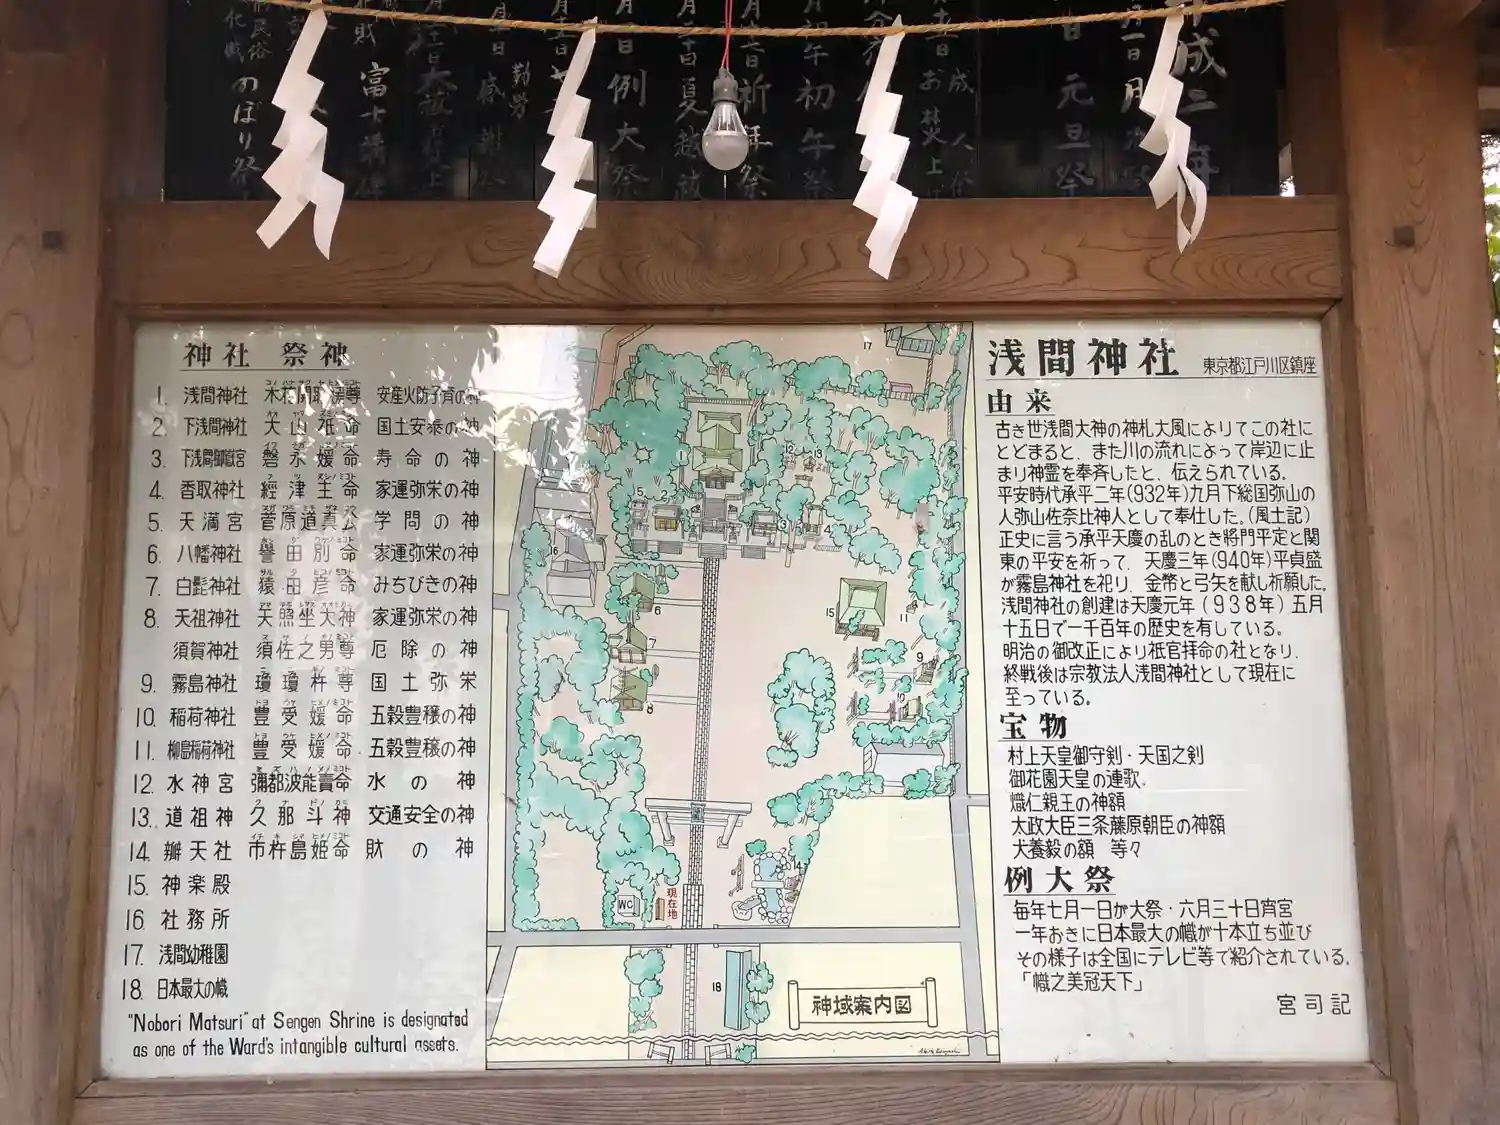 成二年
月一日
元旦祭
成人祭
お焚上
初午
初午祭
祈年祭
夏越
例大祭
富士講
のぼり祭
神社 祭神
1. 浅間神社 木花開耶姫尊 安産火防子育の神
2. 下浅間神社 大山祇命 国土安泰の神
3. 下浅間御嶽宮 磐永媛命 寿命の神
4. 香取神社 經津主命 家運弥栄の神
5. 天満宮 菅原道真公 学問の神
6. 八幡神社 譽田別命 家運弥栄の神
7. 白髭神社 猿田彦命 みちびきの神
8. 天祖神社 天照坐大神 家運弥栄の神
須賀神社 須佐之男尊 厄除の神
9. 霧島神社 瓊瓊杵尊 国土弥栄
10. 稲荷神社 豊受媛命 五穀豊穣の神
11. 柳島稲荷神社 豊受媛命 五穀豊穣の神
12. 水神宮 彌都波能賣命 水の神
13. 道祖神 久那斗神 交通安全の神
14. 辧天社 市杵島姫命 財の神
15. 神楽殿
16. 社務所
17. 浅間幼稚園
18. 日本最大の幟
"Nobori Matsuri" at Sengen Shrine is designated
as one of the Ward's intangible cultural assets.
17
1
12
13
5
2
3
4
16
6
15
11
7
9
8
10
14
WC
現在地
18
神域案内図
浅間神社 東京都江戸川区鎮座
由来
古き世浅間大神の神札大風によりてこの社に
とどまると、また川の流れによって岸辺に止
まり神霊を奉斉したと、伝えられている。
平安時代承平二年(932年)九月下総国弥山の
人弥山佐奈比神人として奉仕した。(風土記)
正史に言う承平天慶の乱のとき將門平定と関
東の平安を祈って、天慶三年(940年)平貞盛
が霧島神社を祀り、金幣と弓矢を献し祈願した。
浅間神社の創建は天慶元年(938年)五月
十五日で一千百年の歴史を有している。
明治の御改正により祇官拝命の社となり、
終戦後は宗教法人浅間神社として現在に
至っている。
宝物
村上天皇御守剣・天国之剣
御花園天皇の連歌。
熾仁親王の神額
太政大臣三条藤原朝臣の神額
犬養毅の額 等々
例大祭
毎年七月一日が大祭・六月三十日宵宮
一年おきに日本最大の幟が十本立ち並び
その様子は全国にテレビ等で紹介されている。
「幟之美冠天下」
宮司記